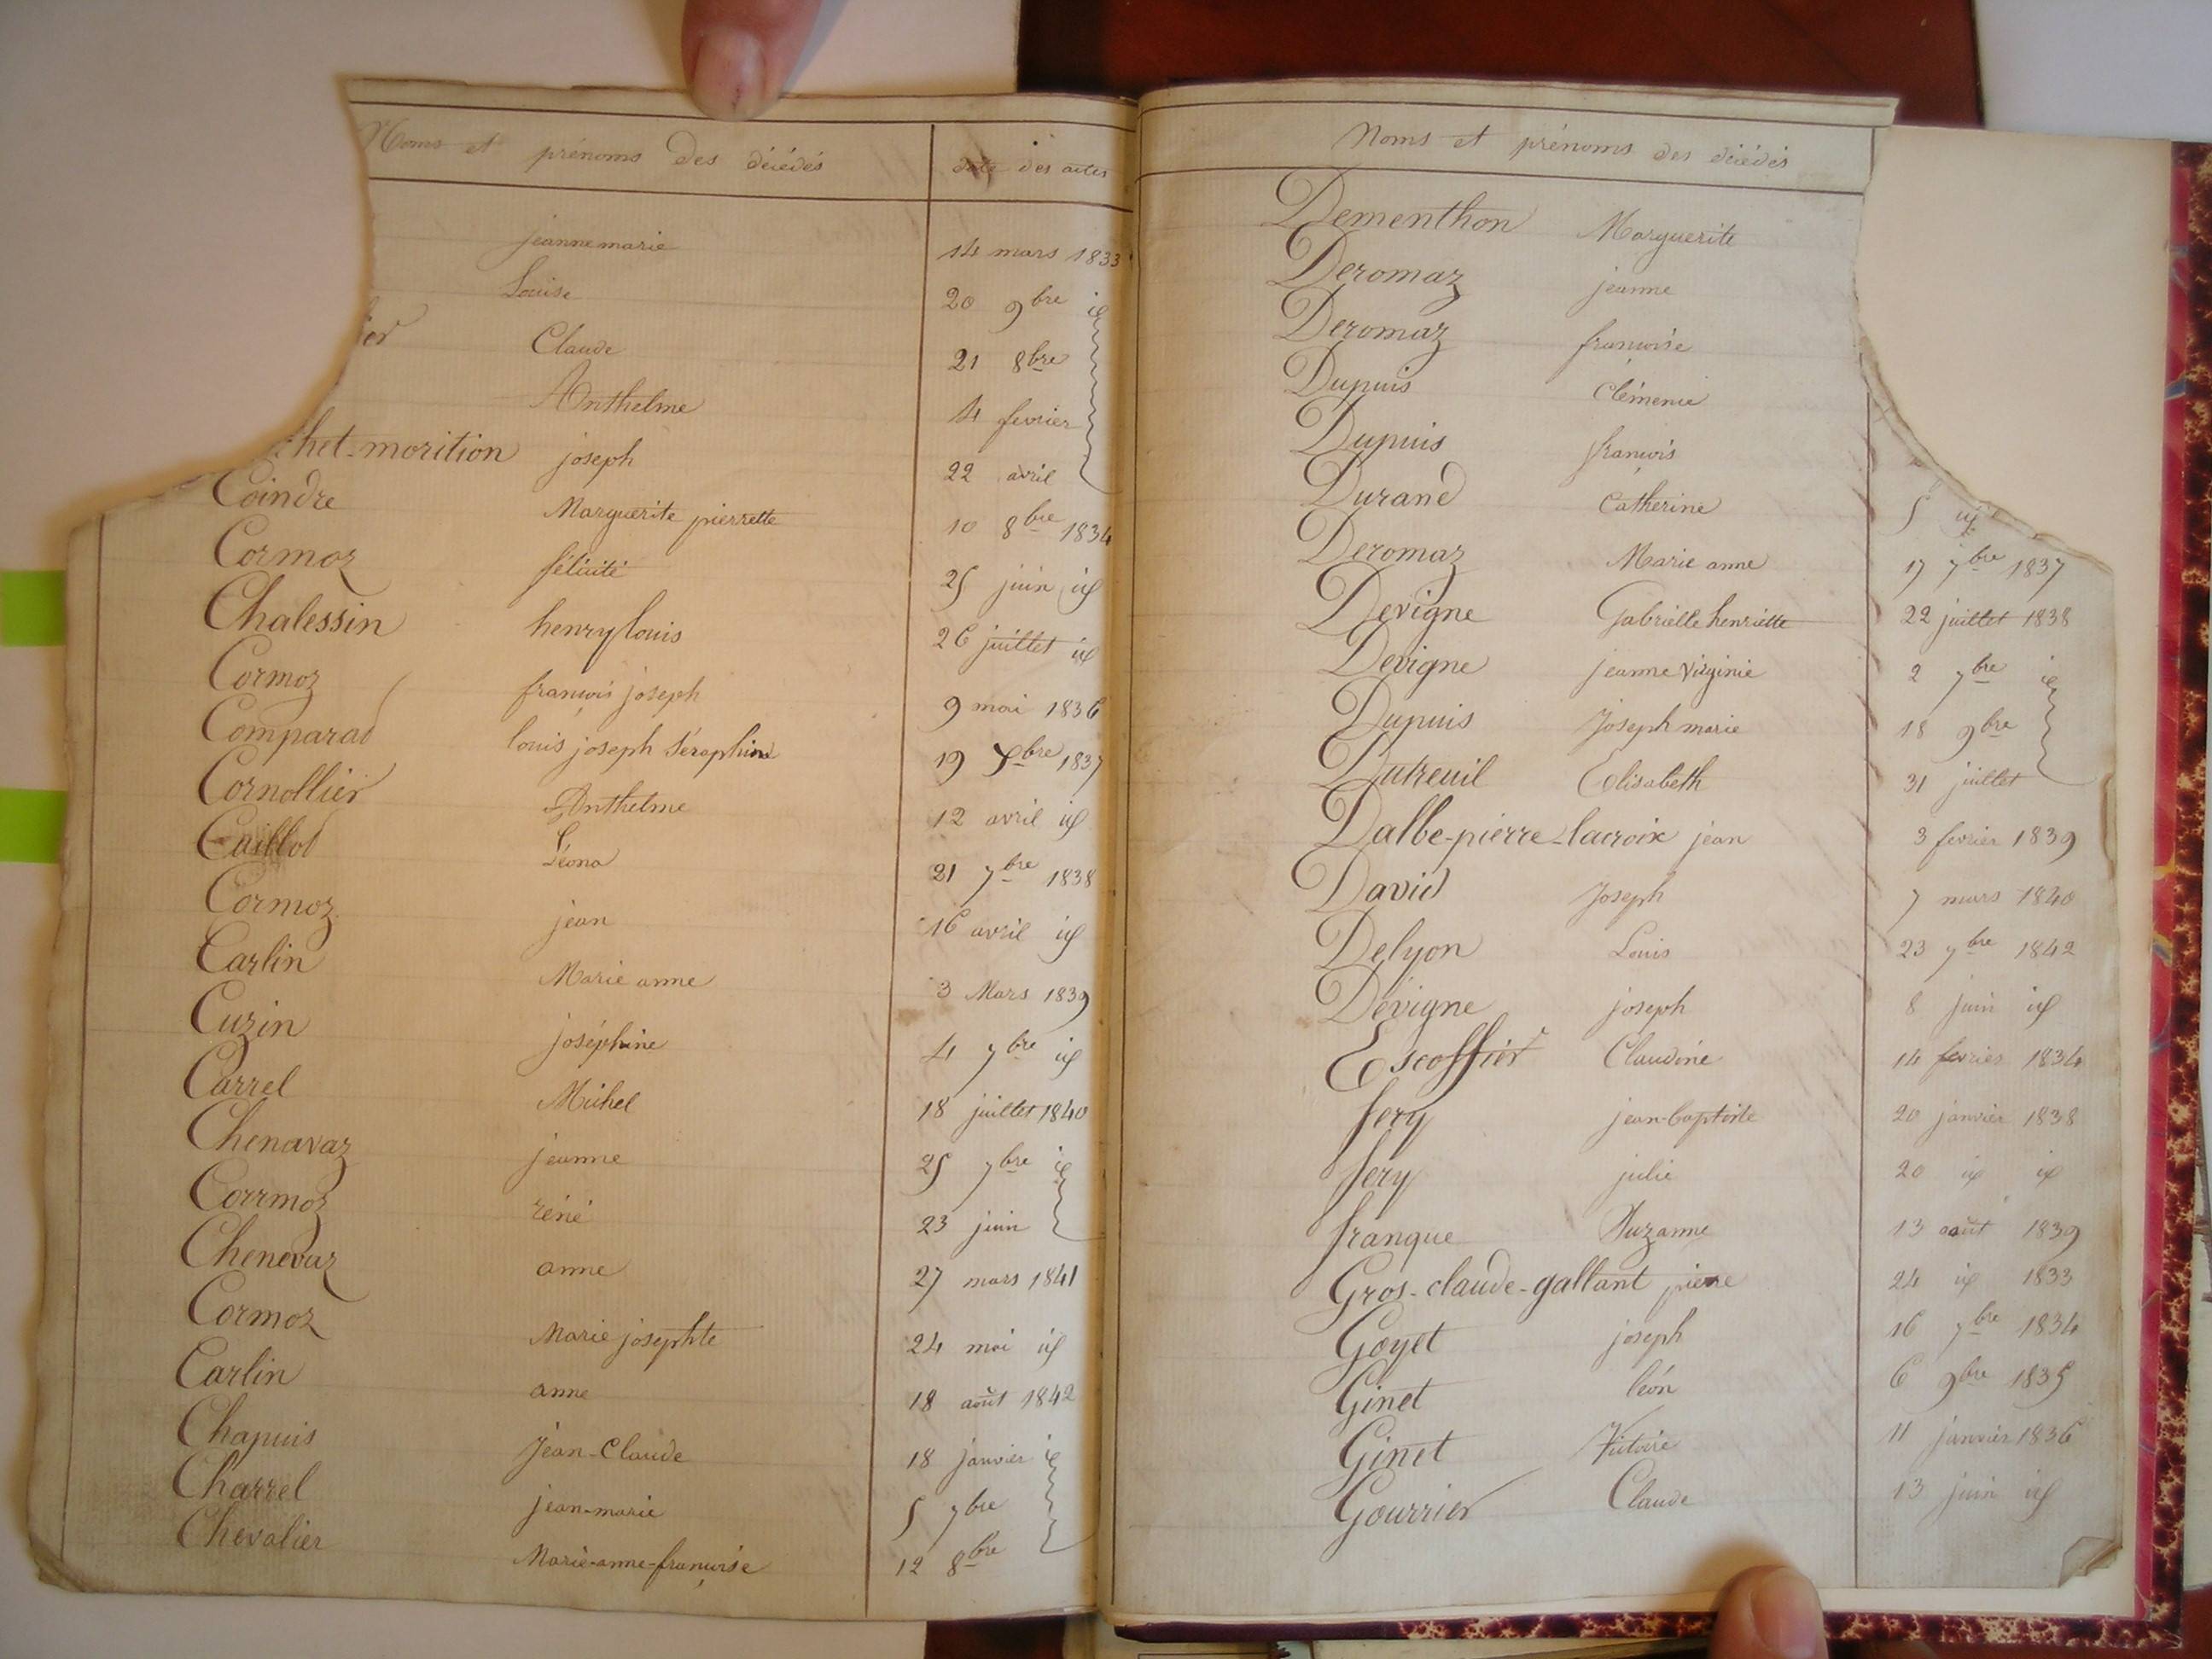 Noms et prénoms des décédés date des actes
jeanne marie 14 mars 1833
Louise 20 9bre id
er Claude 21 8bre
Anthelme 4 fevrier
het-morition joseph 22 avril
Coindre Marguerite pierrette 10 8bre 1834
Cormoz félicité 25 juin id
Chalessin henry louis 26 juillet id
Cormoz françois joseph 9 mai 1836
Comparat louis joseph Séraphin 19 Xbre 1837
Cornollier Anthelme 12 avril id
Caillot Léona 21 7bre 1838
Cormoz jean 16 avril id
Carlin Marie anne 3 Mars 1839
Cuzin joséphine 4 7bre id
Carrel Michel 18 juillet 1840
Chenavaz jeanne 25 7bre id
Corrmoz réné 23 juin
Chenevaz anne 27 mars 1841
Cormoz Marie josephte 24 mai id
Carlin anne 18 août 1842
Chapuis Jean-Claude 18 janvier id
Charrel jean-marie 5 7bre
Chevalier Marie-anne-françoise 12 8bre
Noms et prénoms des décédés
Dementhon Marguerite
Deromaz jeanne
Deromaz françoise
Dupuis Clémence
Dupuis françois
Durand Catherine 5 id
Deromaz Marie anne 17 7bre 1837
Devigne Gabrielle henriette 22 juillet 1838
Devigne jeanne Virginie 2 7bre id
Dupuis Joseph marie 18 9bre
Dutreuil Elisabeth 31 juillet
Dalbe-pierre-lacroix jean 3 fevrier 1839
David Joseph 7 mars 1840
Delyon Louis 23 7bre 1842
Dévigne joseph 8 juin id
Escoffier Claudine 14 fevrier 1834
fery jean-baptiste 20 janvier 1838
fery julie 20 id id
franque Suzanne 13 août 1839
Gros-claude-gallant pierre 24 id 1833
Goyet joseph 16 7bre 1834
Ginet léon 6 9bre 1835
Ginet Victoire 11 janvier 1836
Gourrier Claude 13 juin id